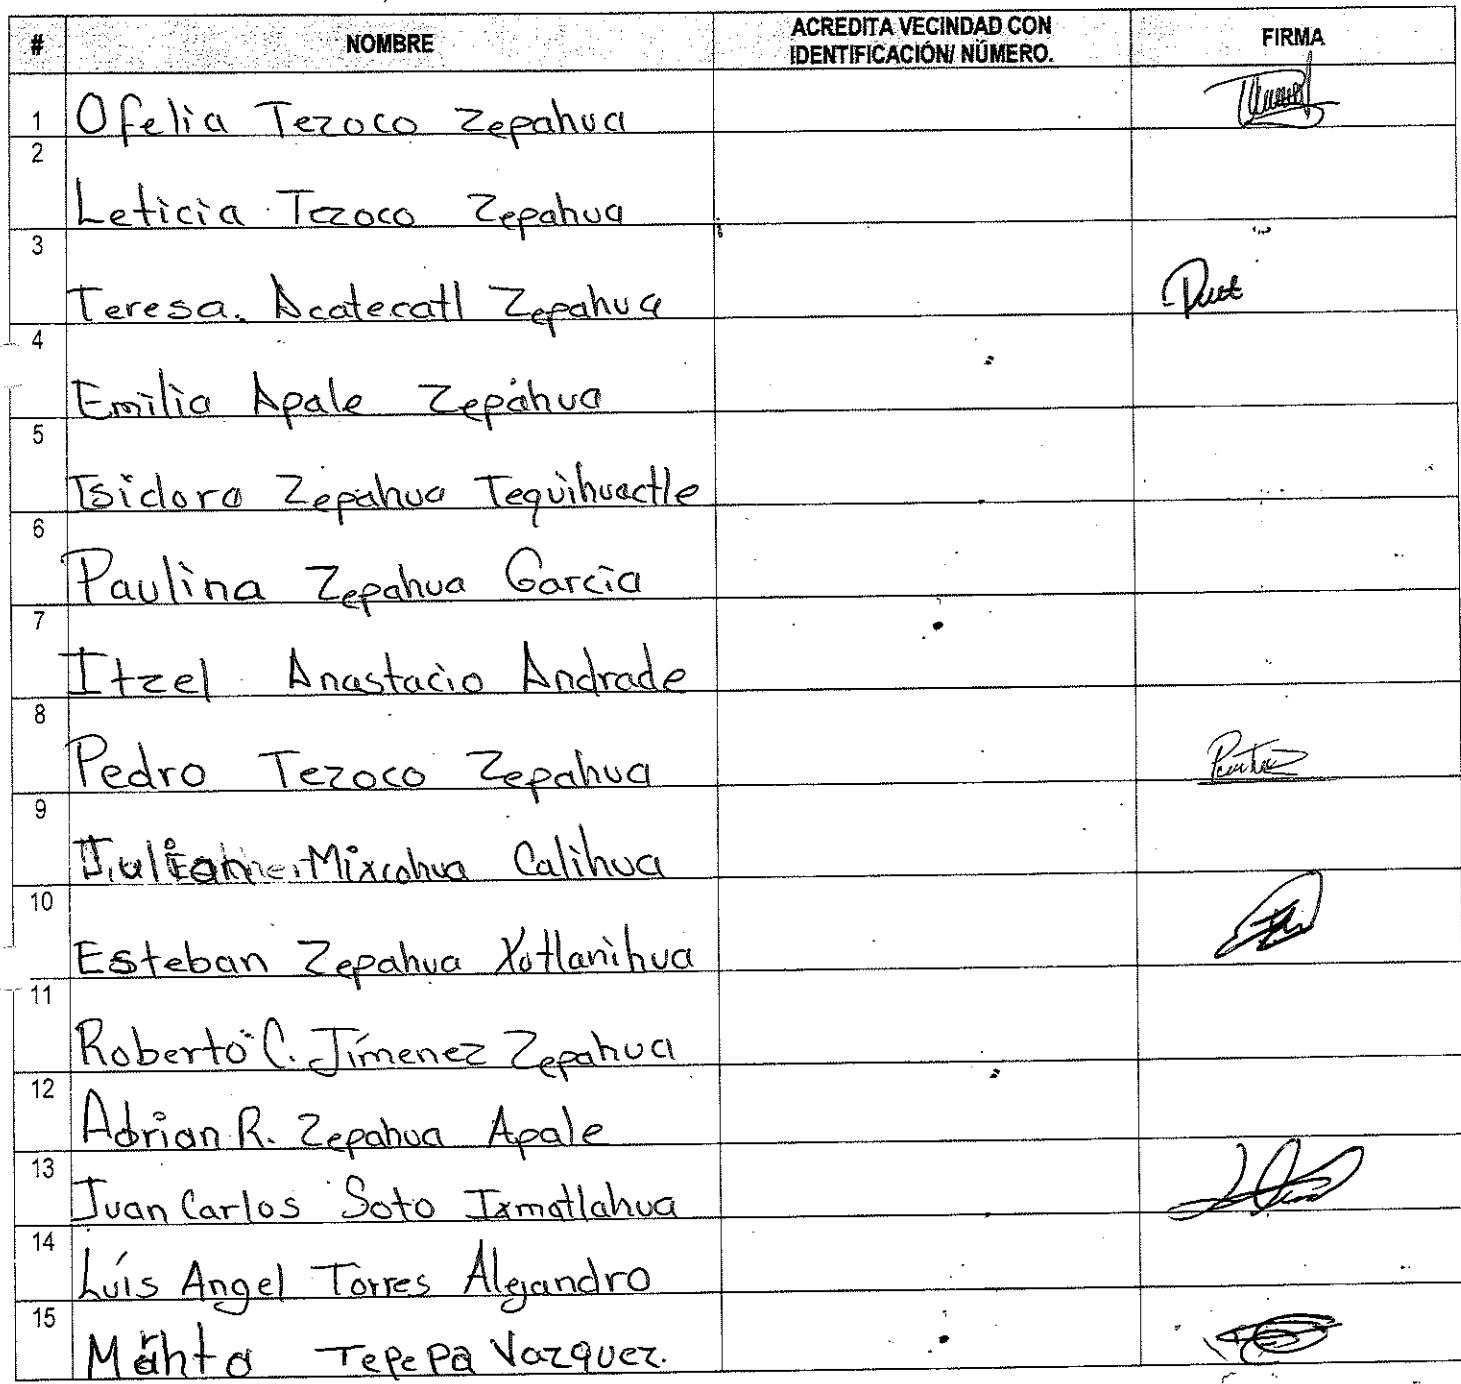 # NOMBRE ACREDITA VECINDAD CON IDENTIFICACIÓN/ NÚMERO. FIRMA
1 Ofelia Tezoco Zepahua
2 Leticia Tezoco Zepahua
3 Teresa. Acatecatl Zepahua
4 Emilia Apale Zepahua
5 Isidora Zepahua Tequihuactle
6 Paulina Zepahua Garcia
7 Itzel Anastacio Andrade
8 Pedro Tezoco Zepahua
9 Mixcohua Calihua
10 Esteban Zepahua Xotlanihua
11 Roberto C. Jímenez Zepahua
12 Adrian R. Zepahua Apale
13 Juan Carlos Soto Ixmatlahua
14 Luís Angel Torres Alejandro
15 Tepepa Vazquez.